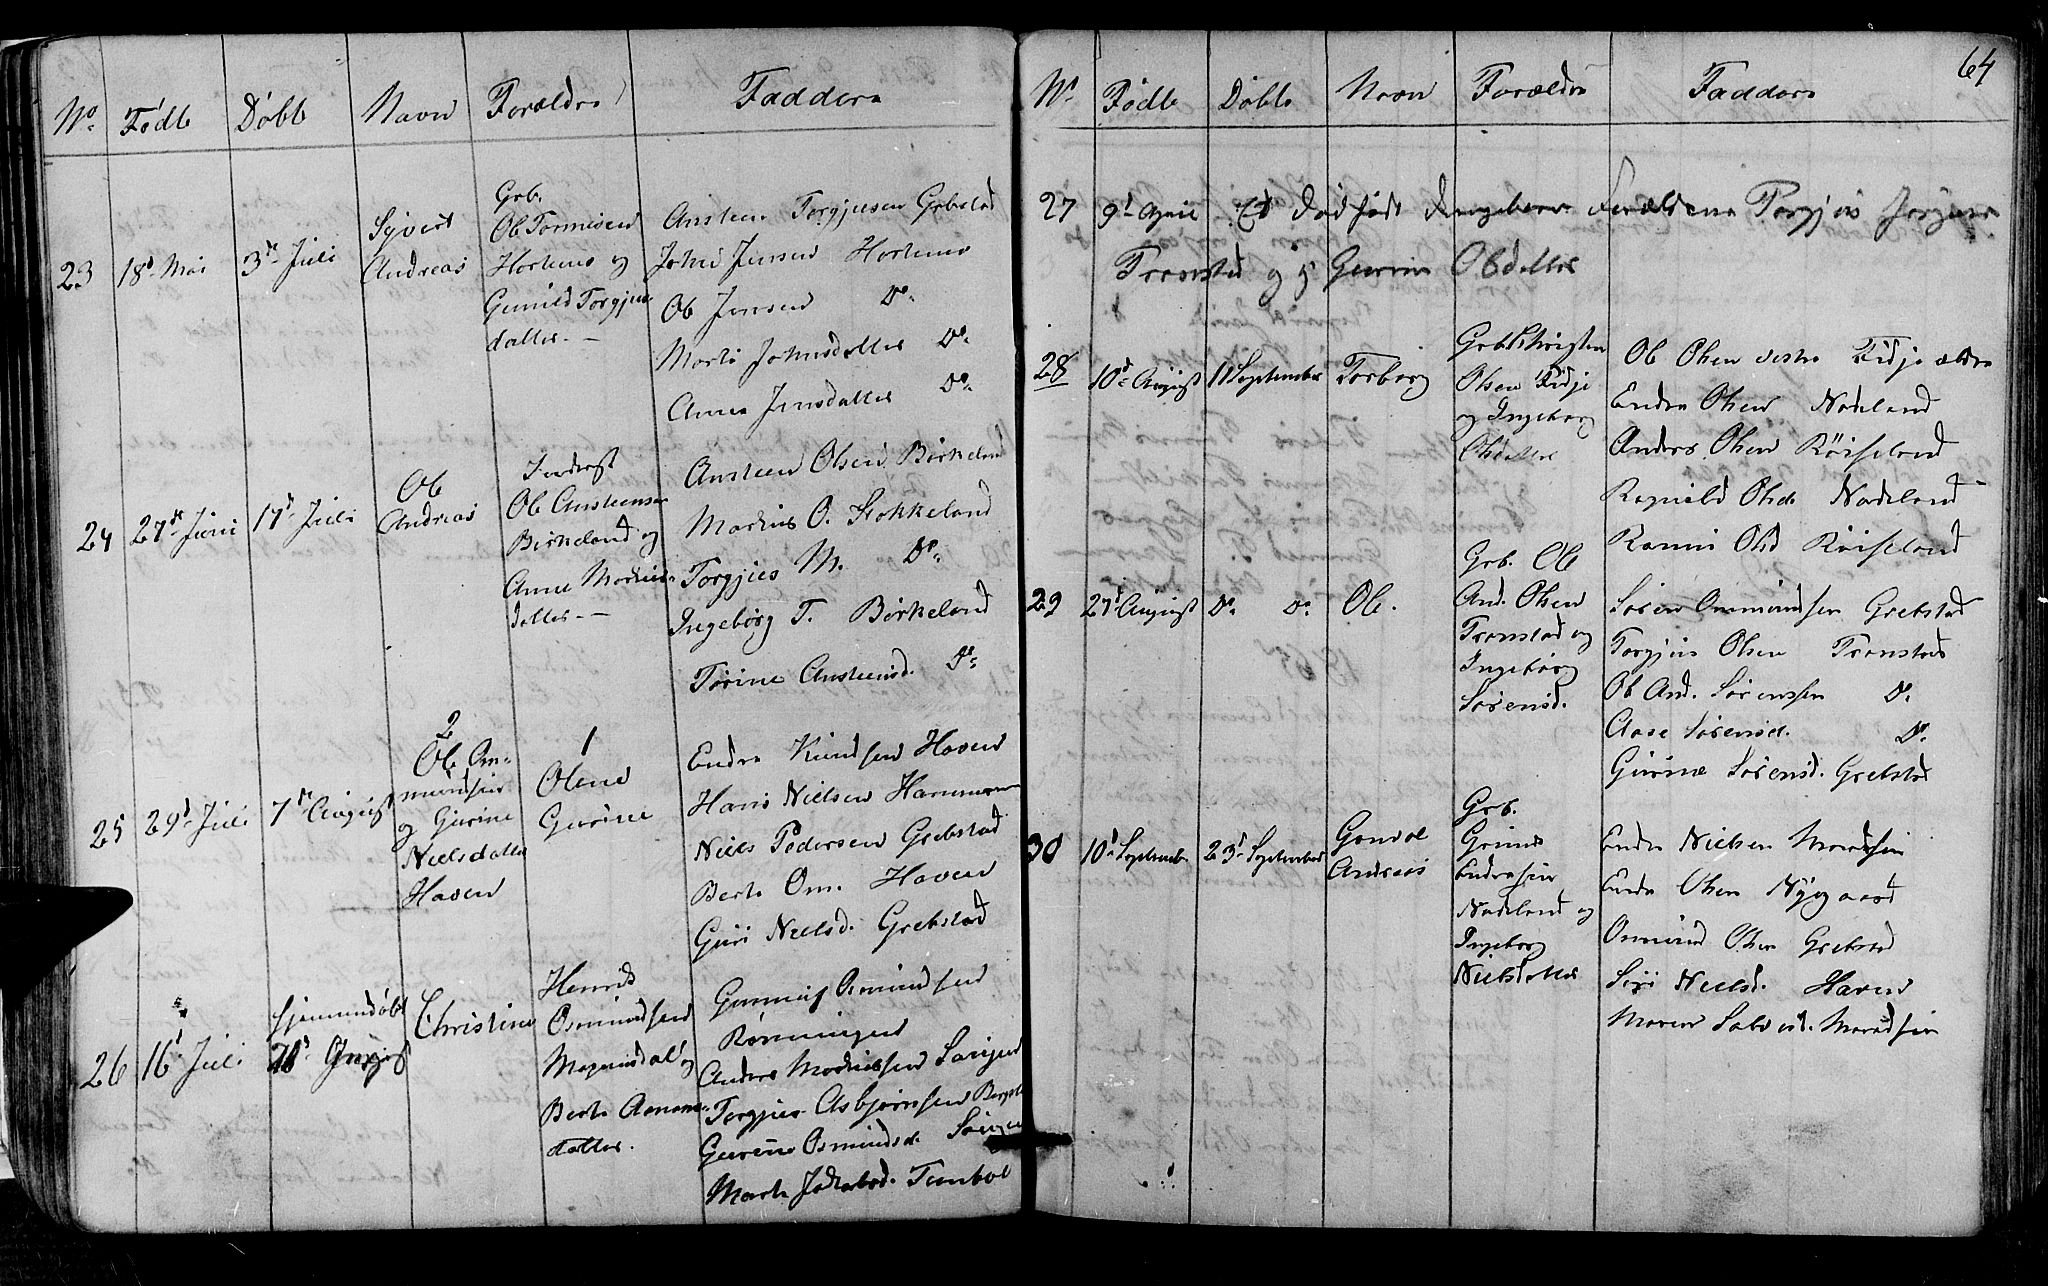 No Fødte Døbte Navn Forældre Faddere
23 18d Mai 3d Juli
Syvert
Andreas
Grb.
Ole Tormesen
Hortemo og
Gunild Torgjus-
datter. —
Ansteen Torgjusen Grbstad
John Jensen Hortemo
Ole Jensen Do.
Marte Johnsdatter Do.
Anne Jensdatter Do.
24 27de Juni 17d Juli
Ole
Andreas
Inderst
Ole Ansteensen
Birkeland og
Anne Markus-
datter —
Ansteen Olsen Birkeland
Markus O. Stokkeland
Torgjus M. Do.
Ingeborg T. Birkeland
Torine Ansteensd. Do.
25 29d Juli 7de August
2
Ole Om-
mundsen
og Gurine
Nielsdatter
Haven
1
Olene
Gurine
Endre Knudsen Haven
Hans Nielsen Hammeren
Niels Pedersen Grebstad
Berte Om. Haven
Guri Nielsd. Grebstad
26 16d Juli
hjemmedøbt
August
Christine
Henrik
Osmundsen
og
Berte Aanons-
datter.
Osmundsen
Rønningen
Anders Markussen
Torgjus Asbjørnsen
Osmundsd.
Marte Tunbol
64
No Fødte Døbte Navn Forældre Faddere
27 9d April Et dødfødt Forældrene Torgjus
Tronstad og Gurine Olsdatter
28 10d August 11 September Torborg
Olsen Kidje
og Ingeborg
Olsdatter
Ole Olsen vestre Kidje ældre
Endre Olsen Nodeland
Anders Olsen Røiseland
Ragnild Olsd. Nodeland
Olsd Røiseland
29 27d August Do. Do. Ole.
Grb. Ole
And. Olsen
Tronstad og
Ingeborg
Sørensd.
Søren Ommundsen Grebstad
Torgjus Olsen Tronstad
Ole And. Sørensen Do.
Aase Sørensd. Do.
Gurine Sørensd. Grebstad
30 10d September 23d September
Andreas
Grb.
Endresen
Nodeland og
Ingeborg
Nielsdatter
Endre Nielsen
Endre Olsen Nygaard
Ommund Olsen Grebstad
Siri Nielsd. Haven
Maren